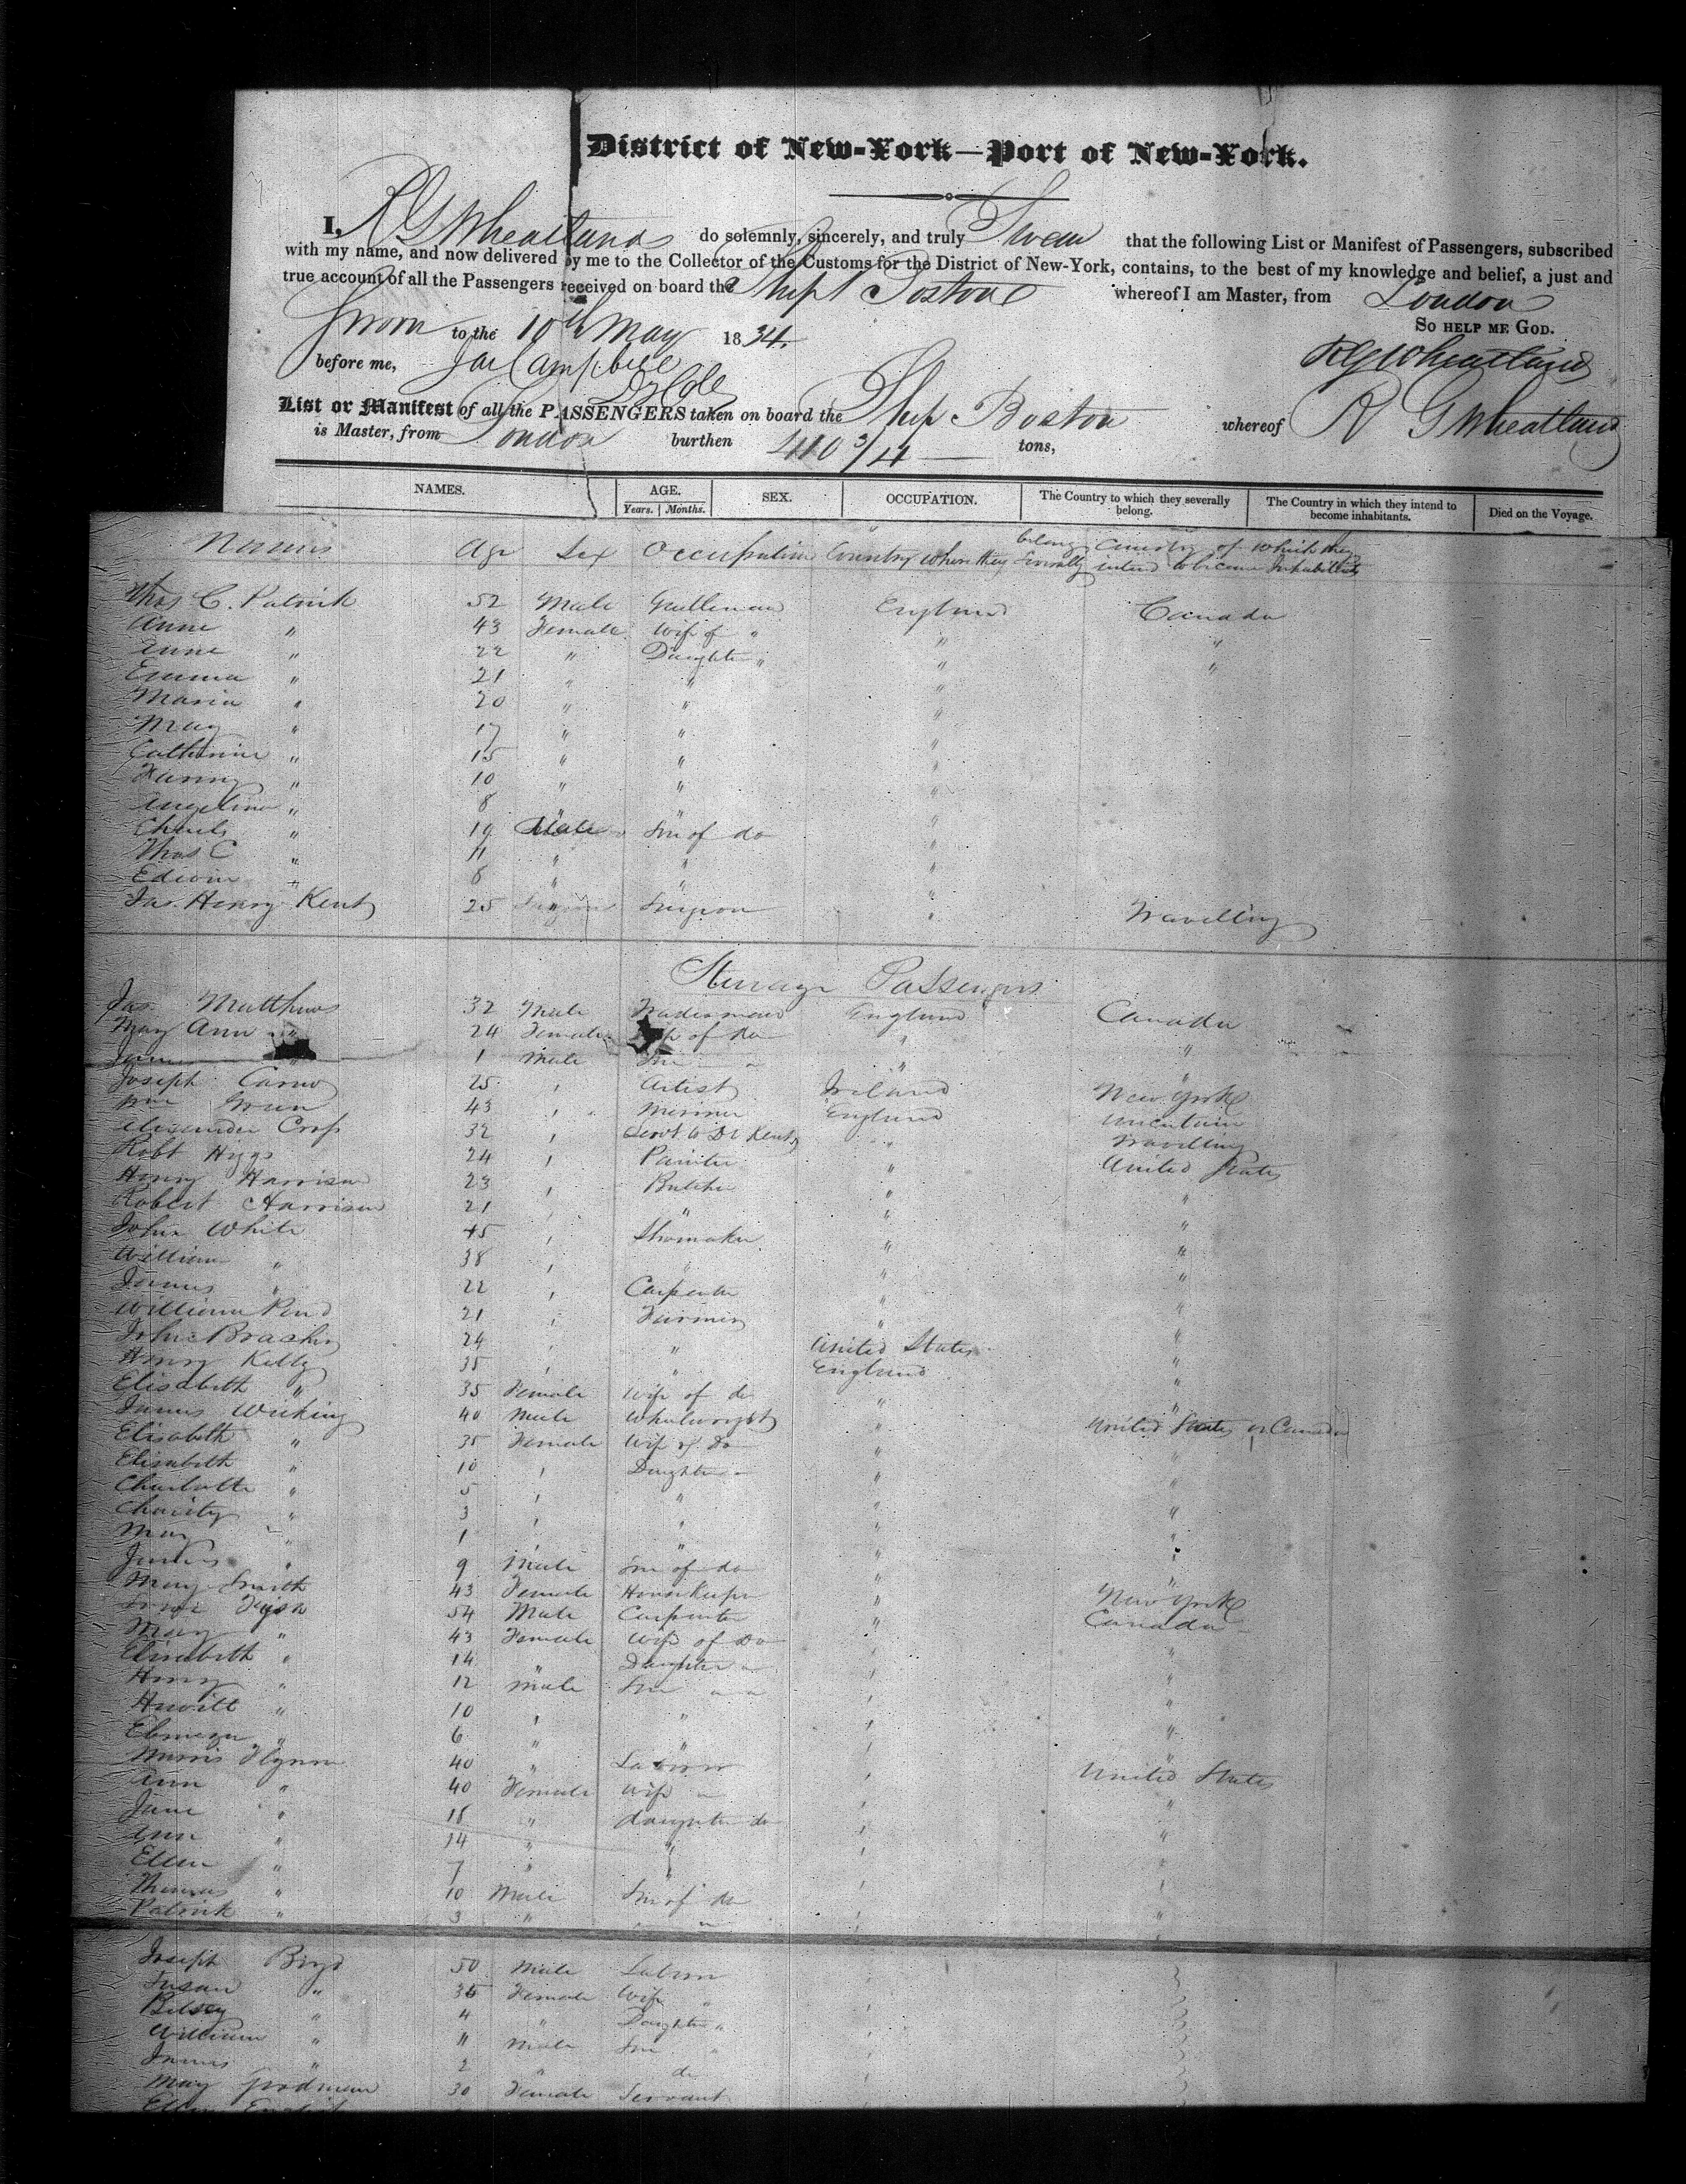 District of New-York—Port of New-York.
I, R G Wheatland do solemnly, sincerely, and truly Swear that the following List or Manifest of Passengers, subscribed
with my name, and now delivered by me to the Collector of the Customs for the District of New-York, contains, to the best of my knowledge and belief, a just and
true account of all the Passengers received on board the Ship Boston whereof I am Master, from London
So help me God.
Sworn to the 10th May 1834. R G Wheatland
before me, Jas Campbell
Dy Col
List or Manifest of all the PASSENGERS taken on board the Ship Boston whereof R G Wheatland
is Master, from London burthen 410 3/4 tons,
NAMES. AGE. Years. Months. SEX. OCCUPATION. The Country to which they severally belong. The Country in which they intend to become inhabitants. Died on the Voyage.
Names Age Sex Occupation Country where they severally belong Country of which they intend to become Inhabitants
Thos C. Patrick 52 Male Gentleman England Canada
Anne " 43 Female Wife of " " "
Anne " 22 " Daughter " " "
Emma " 21 " " "
Maria " 20 " " "
Mary " 17 " " "
Catherine " 15 " " "
Fanny " 10 " " "
Angelina " 8 " " "
Charles " 19 Male Son of do "
Thos C " 11 " " "
Edwin " 8 " " "
Jas. Henry Kent 25 " Surgeon " Travelling
Steerage Passengers
Jas. Matthews 32 Male Tradesman England Canada
Mary Ann " 24 Female Wife of do " "
1 Male Son " "
Joseph 25 " Artist Ireland New York
Wm Green 43 " Mariner England Uncertain
Alexander 32 " Servt to Dr Kent " Travelling
Robt Higgs 24 " Painter " United States
Henry Harrison 23 " Butcher " "
Robert Harrison 21 " " " "
John White 45 " Shoemaker " "
William " 38 " " " "
James " 22 " Carpenter " "
William 21 " Farmer " "
John 24 " " United States "
Henry Kelly 35 " " England "
Elisabeth " 35 Female Wife of do " "
James Wicking 40 Male Wheelwright " United States or Canada
Elisabeth " 35 Female Wife of Do " "
Elisabeth " 10 " Daughter " "
Charlotte " 5 " " " "
Charity " 3 " " " "
May " 1 " " " "
" 9 Male Son of do " "
Mary Smith 43 Female Housekeeper " New York
54 Male Carpenter " Canada
Mary " 43 Female Wife of Do " "
Elisabeth " 14 " Daughter " "
Henry " 12 Male Son " "
Hewitt " 10 " " " "
Ebenezer " 6 " " " "
Flynn 40 " Labourer " United States
Ann " 40 Female Wife " "
Jane " 18 " daughter do " "
Ann " 14 " " " "
Ellen " 7 " " " "
Thomas " 10 Male Son of do " "
Patrick " 3 " " " "
Joseph Boyd 50 Male Labourer
Susan " 36 Female Wife " "
Betsey " 4 " Daughter " "
William " 11 Male Son " "
James " 2 " do "
Mary Goodman 30 Female Servant "
Ellen